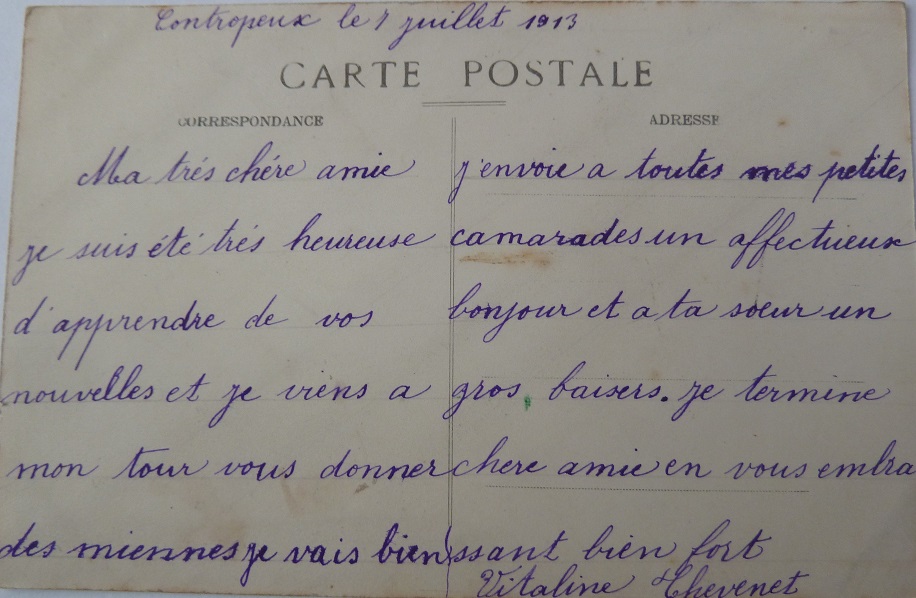 Contropeux le 7 juillet 1913
CARTE POSTALE
CORRESPONDANCE
Ma trés chére amie
je suis été trés heureuse
d'apprendre de vos
nouvelles et je viens a
mon tour vous donner
des miennes je vais bien
ADRESSE
j'envoie a toutes mes petites
camarades un affectueux
bonjour et a ta soeur un
gros baisers. je termine
chere amie en vous embra
ssant bien fort
Vitaline Thevenet